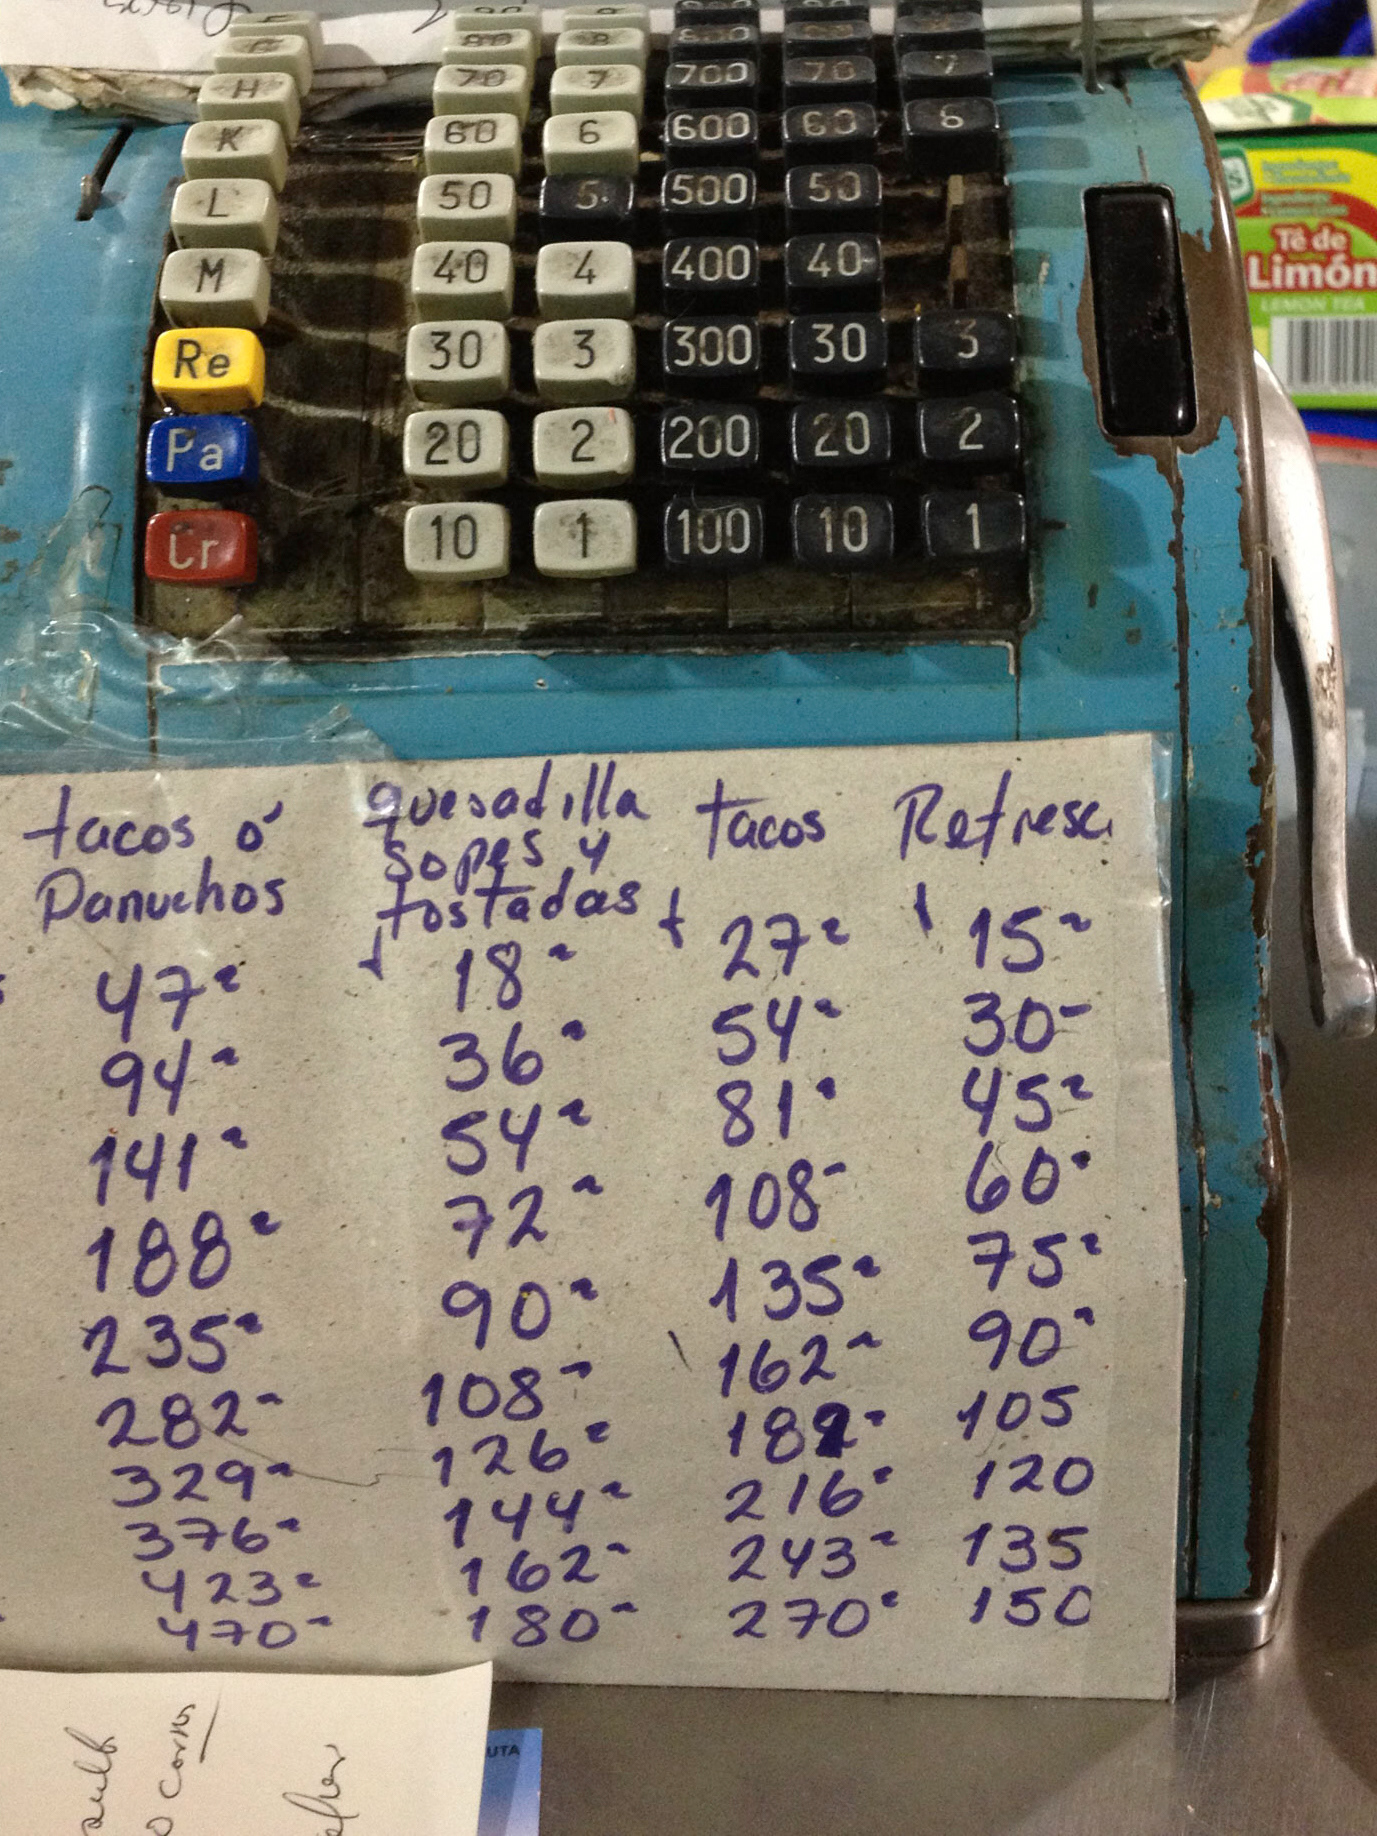 H 70 7 700 70 7
K 60 6 600 60 6
L 50 5 500 50
M 40 4 400 40
Re 30 3 300 30 3
Pa 20 2 200 20 2
Cr 10 1 100 10 1
Té de
Limón
LEMON TEA
tacos ó
Panuchos
47
94
141
188
235
282
329
376
423
470
quesadilla
sopes y
tostadas
18
36
54
72
90
108
126
144
162
180
tacos
27
54
81
108
135
162
189
216
243
270
Refresc
15
30
45
60
75
90
105
120
135
150
UTA